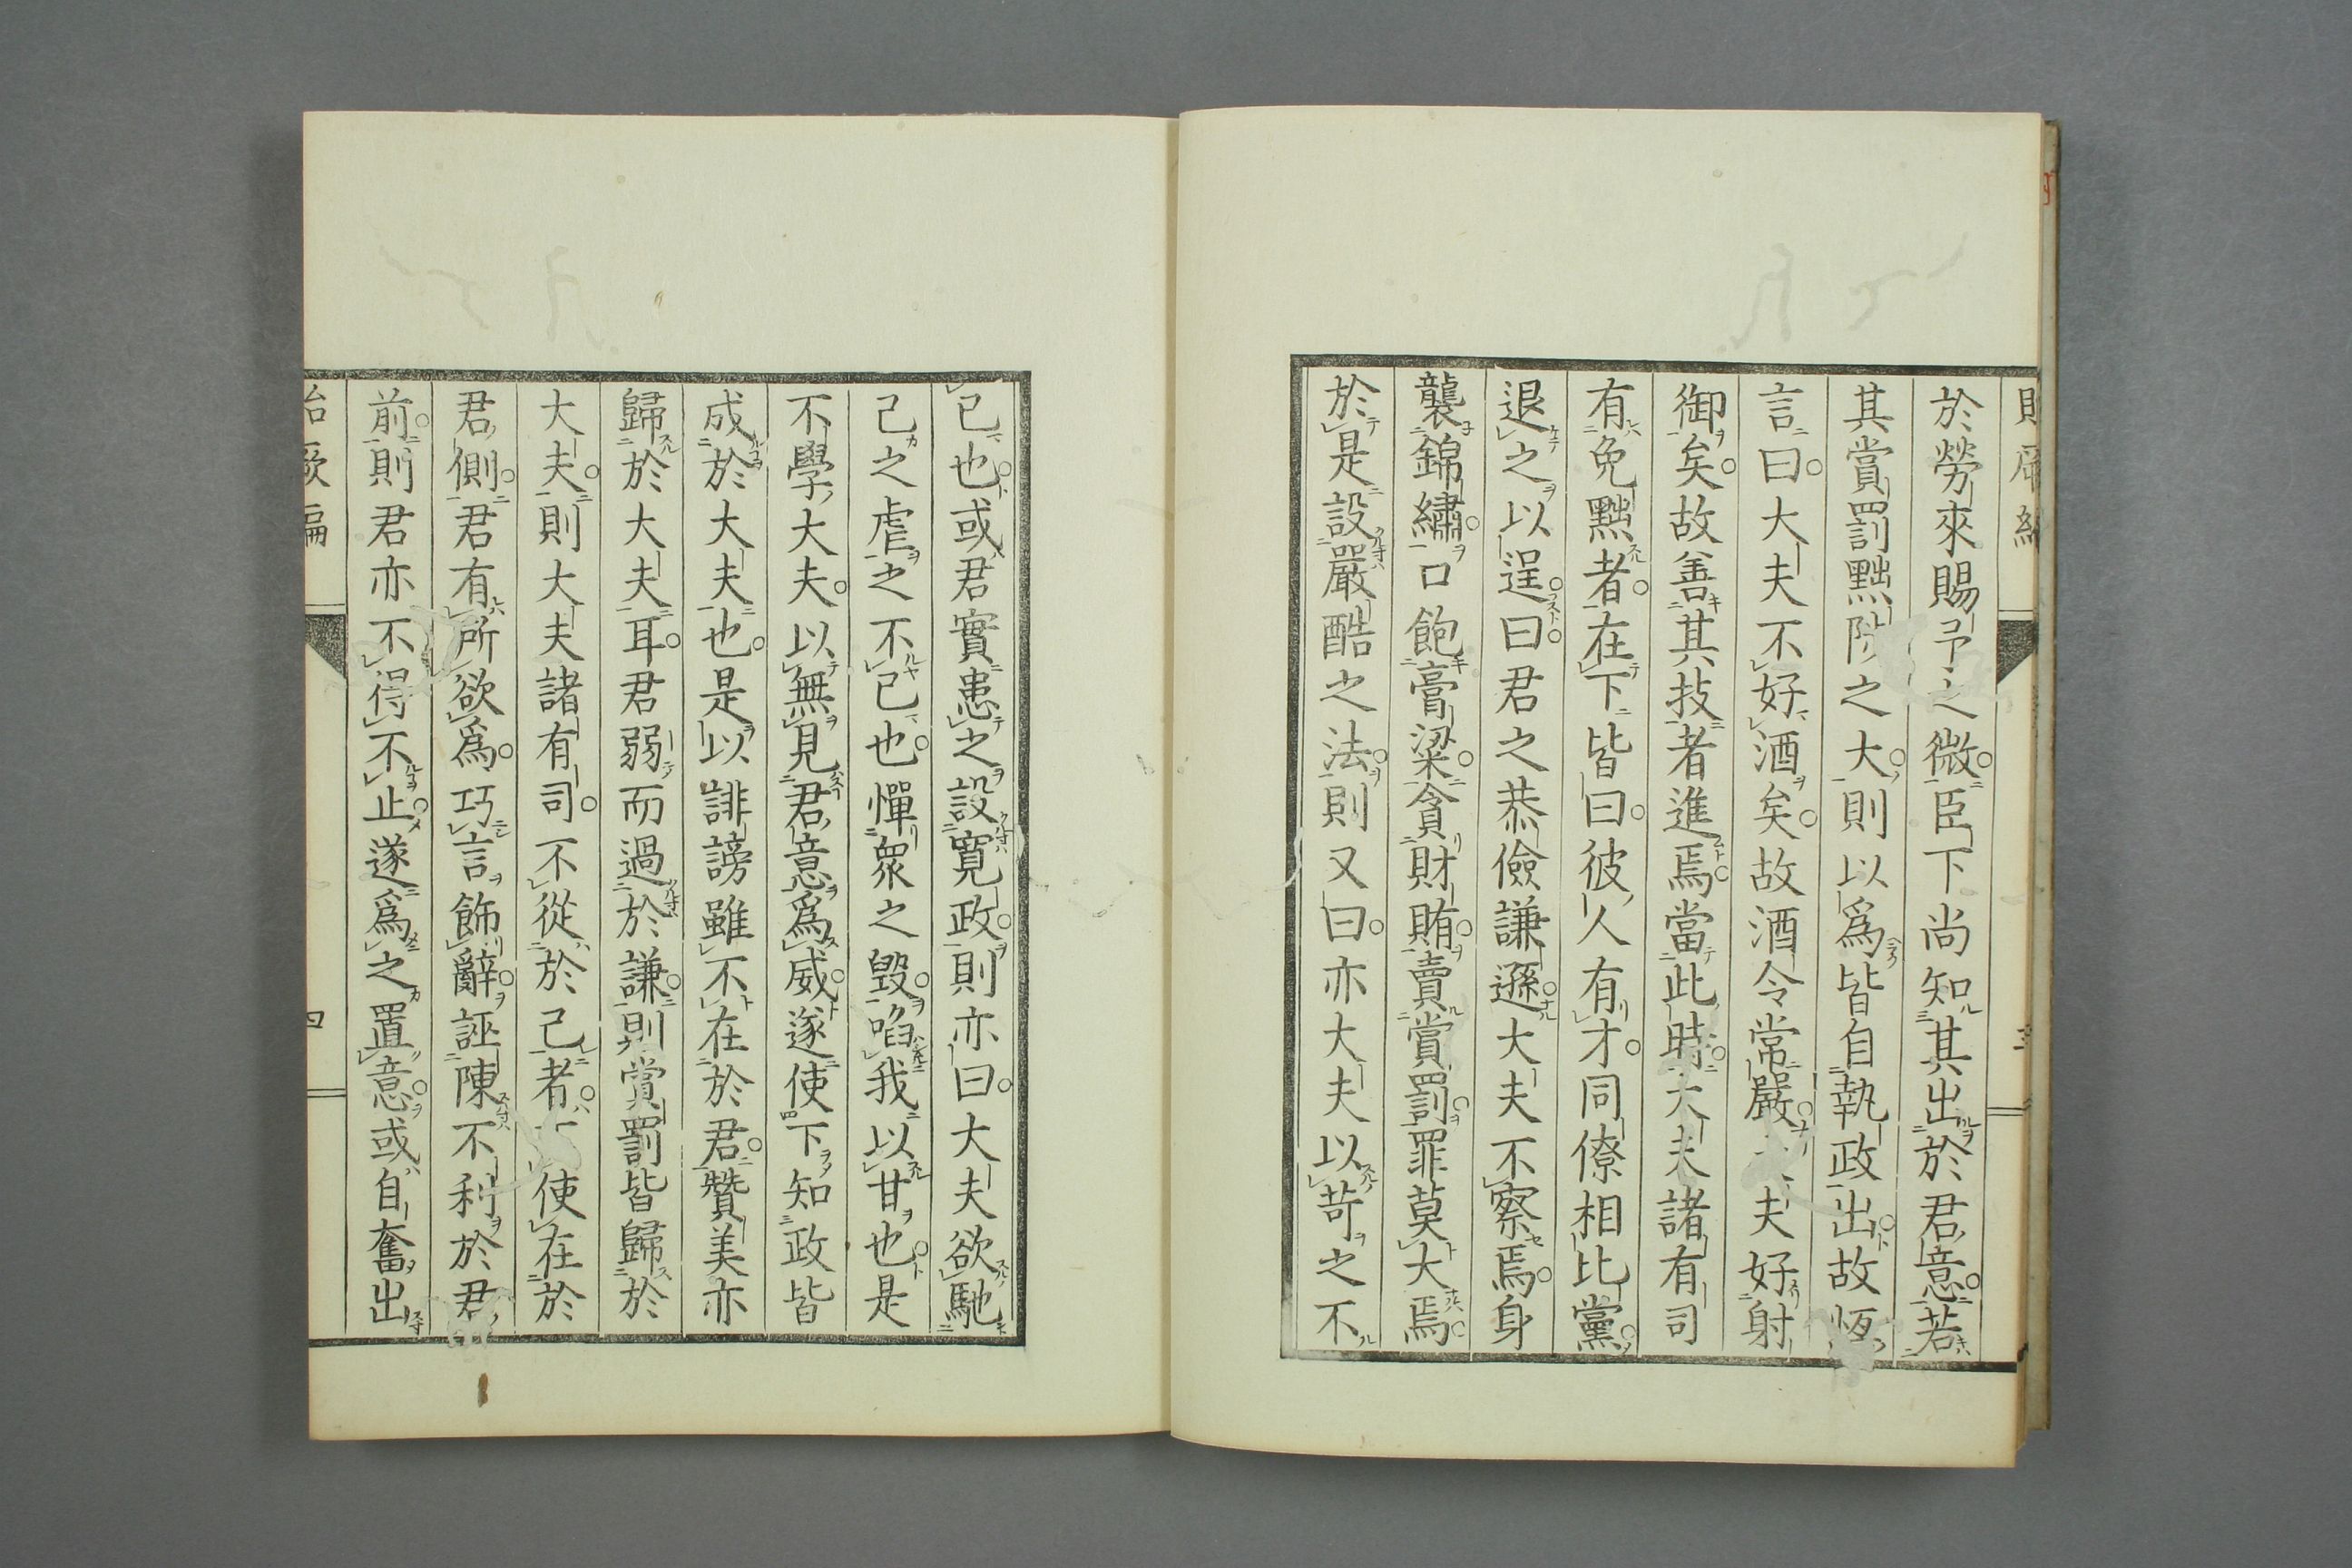 於勞來賜予之微臣下尚知其出於君意若
其賞罰黜陟之大則以爲皆自執政出故恆
言曰大夫不好酒矣故酒令常嚴大夫好射
御矣故善其技者進焉當此時大夫諸有司
有免黜者在下皆曰彼人有才同僚相比黨
退之以逞曰君之恭儉謙遜大夫不察焉身
襲錦繡口飽膏粱貪財賄賣賞罰罪莫大焉
於是設嚴酷之法則又曰亦大夫以苛之不
已也或君實患之設寬政則亦曰大夫欲馳
己之虐之不已也憚衆之毀啗我以甘也是
不學大夫以無見君意爲威遂使下知政皆
成於大夫也是以誹謗雖不在於君贊美亦
歸於大夫耳君弱而過於謙則賞罰皆歸於
大夫則大夫諸有司不從於己者使在於
君側君有所欲爲巧言飾辭誣陳不利於君
前則君亦不得不止遂爲之置意或自奮出
四